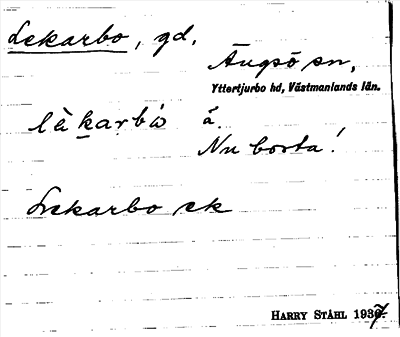 Lekarbo, gd.
Ängsö sn,
Yttertjurbo hd, Västmanlands län.
lè karbò å.
Nu borta!
Lekarbo ek
HARRY STÅHL 1937.